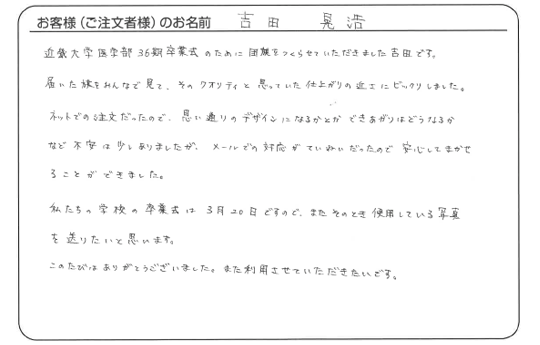 お客様（ご注文者様）のお名前 吉田 晃浩
近畿大学医学部36期卒業式のために団旗をつくらせていただきました吉田です。
届いた旗をみんなで見て、そのクオリティと思っていた仕上がりの近さにビックリしました。
ネットでの注文だったので、思い通りのデザインになるかとかできあがりはどうなるか
など不安は少しありましたが、メールでの対応がていねいだったので安心してまかせ
ることができました。
私たちの学校の卒業式は3月20日ですので、またそのとき使用している写真
を送りたいと思います。
このたびはありがとうございました。また利用させていただきたいです。